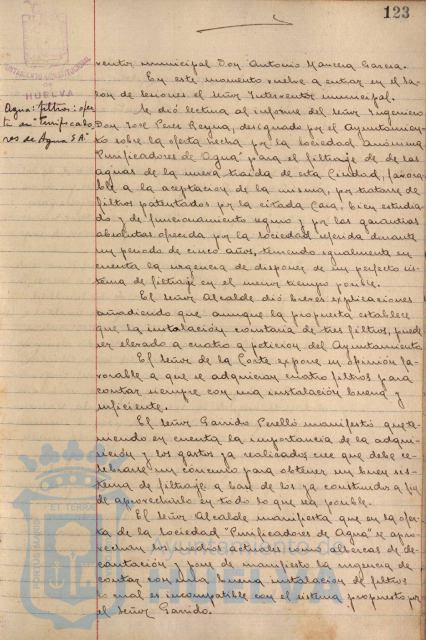 123
AYUNTAMIENTO CONSTITUCIONAL
HUELVA
ventor municipal Don Antonio Mancera Garcia.
En este momento vuelve a entrar en el sa-
lon de sesiones el señor Interventor municipal.
Agua: filtros: ofer-
ta de "Purificado-
res de Agua S.A."
Se dió lectura al informe del Señor Ingeniero
Don José Perez Reyna, designado por el Ayuntamien-
to sobre la oferta hecha por la Sociedad anónima
"Purificadores de Agua" para el filtraje de de las
aguas de la nueva traida de esta Ciudad, favora-
ble a la aceptación de la misma, por tratarse de
filtros patentados por la citada Casa, bien estudia-
do y de funcionamiento seguro y por las garantias
absolutas ofrecida por la Sociedad referida durante
un periodo de cinco años, teniendo igualmente en
cuenta la urgencia de disponer de un perfecto sis-
tema de filtraje en el menor tiempo posible.
El Señor Alcalde dió breves explicaciones
añadiendo que aunque la propuesta establece
que la instalación constaria de tres filtros, puede
ser elevado a cuatro a petición del Ayuntamiento
El Señor de la Corte expone su opinión fa-
vorable a que se adquieran cuatro filtros para
contar siempre con una instalación buena y
suficiente.
El señor Garrido Perelló manifestó que te-
niendo en cuenta la importancia de la adqui-
sición y los gastos ya realizados, cree que debe ce-
lebrarse un concurso para obtener un buen sis-
tema de filtraje a base de los ya construidos a fin
de aprovecharlo en todo lo que sea posible.
El Señor Alcalde manifiesta que en la ofer-
ta de la Sociedad "Purificadores de Agua" se apro-
vechan los medios actuales como albercas de de-
cantación y pone de manifiesto la urgencia de
contar con una buena instalación de filtros
lo cual es incompatible con el sistema propuesto por
el Señor Garrido.